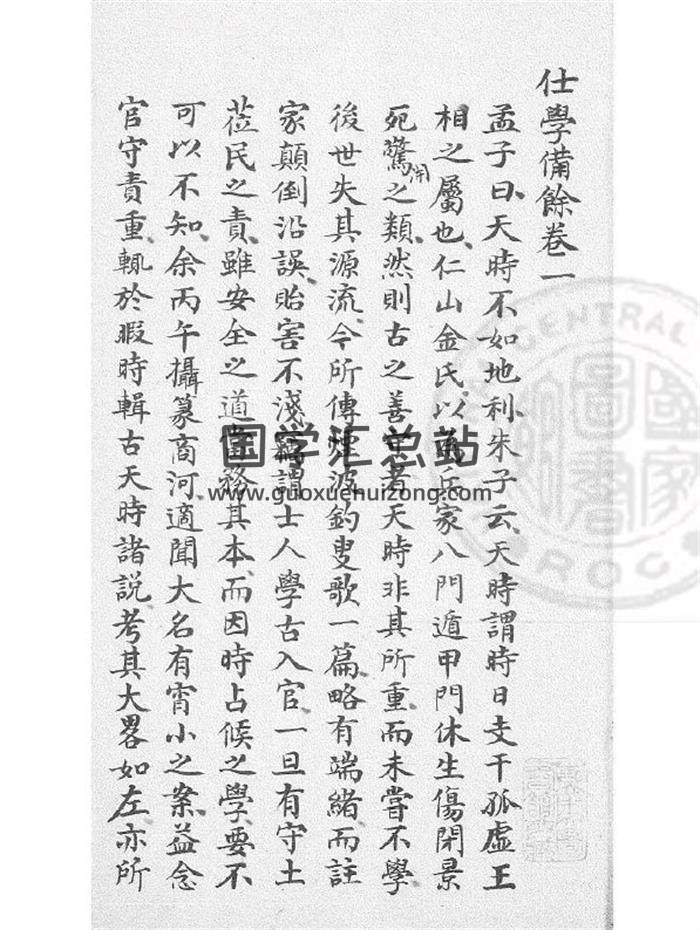 仕學備餘卷一
孟子曰天時不如地利朱子云天時謂時日支干孤虛王
相之屬也仁山金氏以兵家八門遁甲門休生傷閉景
死驚開之類然則古之善者天時非其所重而未嘗不學
後世失其源流今所傳煙波釣叟歌一篇略有端緒而註
家顛倒沿誤貽害不淺謂士人學古入官一旦有守土
莅民之責雖安全之道務其本而因時占候之學要不
可以不知余丙午攝篆商河適聞大名有宵小之案益念
官守責重輒於暇時輯古天時諸說考其大畧如左亦所
国学汇总站
www.guoxuehuizong.com
CENTRAL
ROC
國家
圖書